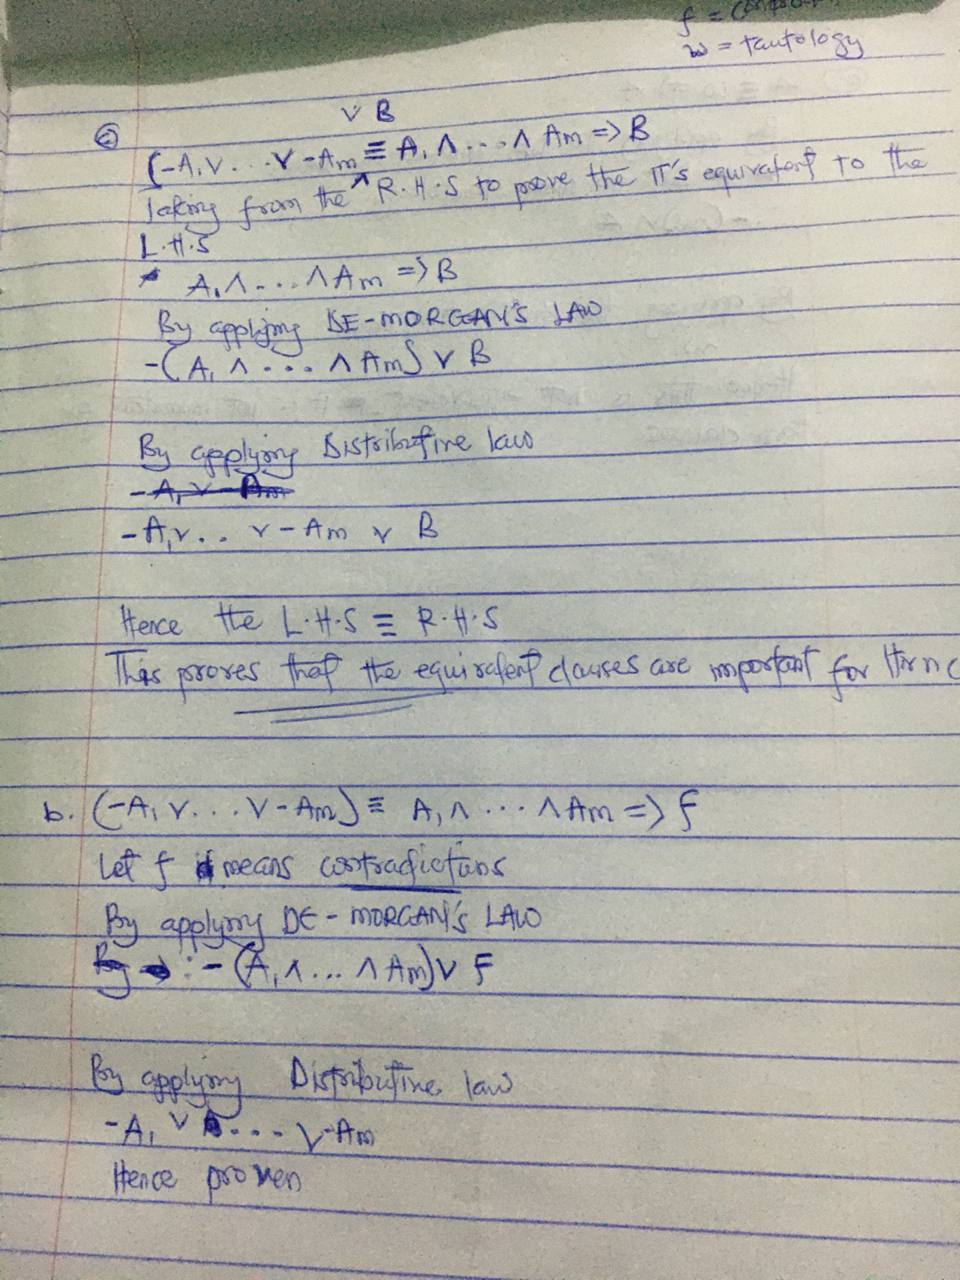 f =
w = tautology
∨ B
(-A₁∨...∨-Am ≡ A₁∧...∧ Am => B
Taking from the ^ R.H.S to prove the IT's equivalent to the
L.H.S
A₁∧...∧Am => B
By applying DE-MORGAN'S LAW
-(A₁ ∧...∧ Am) ∨ B
By applying Distributive law
-A₁∨.. ∨-Am ∨ B
Hence the L.H.S ≡ R.H.S
This proves that the equivalent clauses are important for Horn
b. (-A₁∨...∨-Am) ≡ A₁∧...∧Am => f
Let f means contradictions
By applying DE-MORGAN'S LAW
:-(A₁∧...∧Am)∨ f
By applying Distributive law
-A₁ ∨ ... ∨-Am
Hence proven